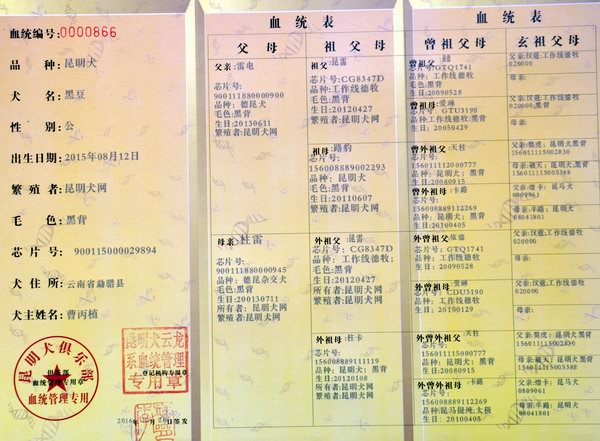 血统编号:0000866
品 种:昆明犬
犬 名:黑豆
性 别:公
出生日期:2015年08月12日
繁殖者:昆明犬网
毛 色:黑背
芯片号: 900115000029894
犬住所:云南省勐腊县
犬主姓名:曹丙植
昆明犬俱乐部
俱乐部
血统管理专用章
血统管理专用
昆明犬云龙
系血统管理
专用章
登记机构专用章
签发
血统表
父母
祖父母
父亲:雷电
芯片号:
900111880000900
品种: 德昆犬
毛色:黑背
生日:20130611
繁殖者:昆明犬网
母亲:杜雷
芯片号:
900111880000945
品种: 德昆杂交犬
毛色:黑背
生日:200130711
所有者:昆明犬网
繁殖者:昆明犬网
祖父:昆雷
芯片号:CG8347D
品种:工作线德牧
毛色:黑背
生日:20120427
繁殖者:昆明犬网
祖母:路豹
芯片号:
156008889002293
品种: 昆明犬
毛色:黑背
生日:20110607
繁殖者:昆明犬网
外祖父:昆雷
芯片号:CG8347D
品种:工作线德牧;
毛色:黑背
生日:20120427
所有者:昆明犬网
繁殖者:昆明犬网
外祖母:杜卡
芯片号:
156008889111519
品种: 昆明犬
毛色:黑背
生日:20120108
所有者:昆明犬网
繁殖者:昆明犬网
血统表
曾祖父母
玄祖父母
曾祖父:
芯片号:GTQ1741
品种: 工作线德牧:黑背
生日:20090528
曾祖母:爱琳
芯片号: GTU3190
品种:工作线德牧:黑背
生日: 20050429
曾外祖父:天柱
芯片号:
156000777112000
品种: 昆明犬:黑背
生日:20080915
曾外祖母:卡路
芯片号:
156008889112269
品种: 昆明犬:黑背
生日:20100405
外曾祖父:依德
芯片号:GTQ1741
品种: 工作线德牧:黑背
生日: 20090528
外曾祖母:爱琳
芯片号:CDU3190
品种: 工作线德牧:黑背
生日: 20100129
曾外祖父:天柱
芯片号:
156000777112000
品种: 昆明犬;黑背
生日: 20080915
曾外曾祖母:卡路
芯片号:
156008889112269
品种:昆马提纯:太狼
生日: 20100405
父亲:汉道:工作线德牧
020000
母亲:
父亲:汉道:工作线德牧
020000:黑背
母亲:
父亲:獒虎: 昆明犬:黑背
156011115002830
母亲:破天: 昆明犬黑背
156011115005388
父亲:煌卡: 昆马犬
0809061
母亲:半路: 昆明犬
08041801
父亲:汉道:工作线德牧
020000
母亲:
父亲:汉道:工作线德牧
020000
母亲:
父亲:獒虎: 昆明犬:黑背
母亲:破天: 昆明犬:黑背
156011115005388
父亲:煌卡: 昆马犬
0809061
母亲:半路: 昆明犬
08041801